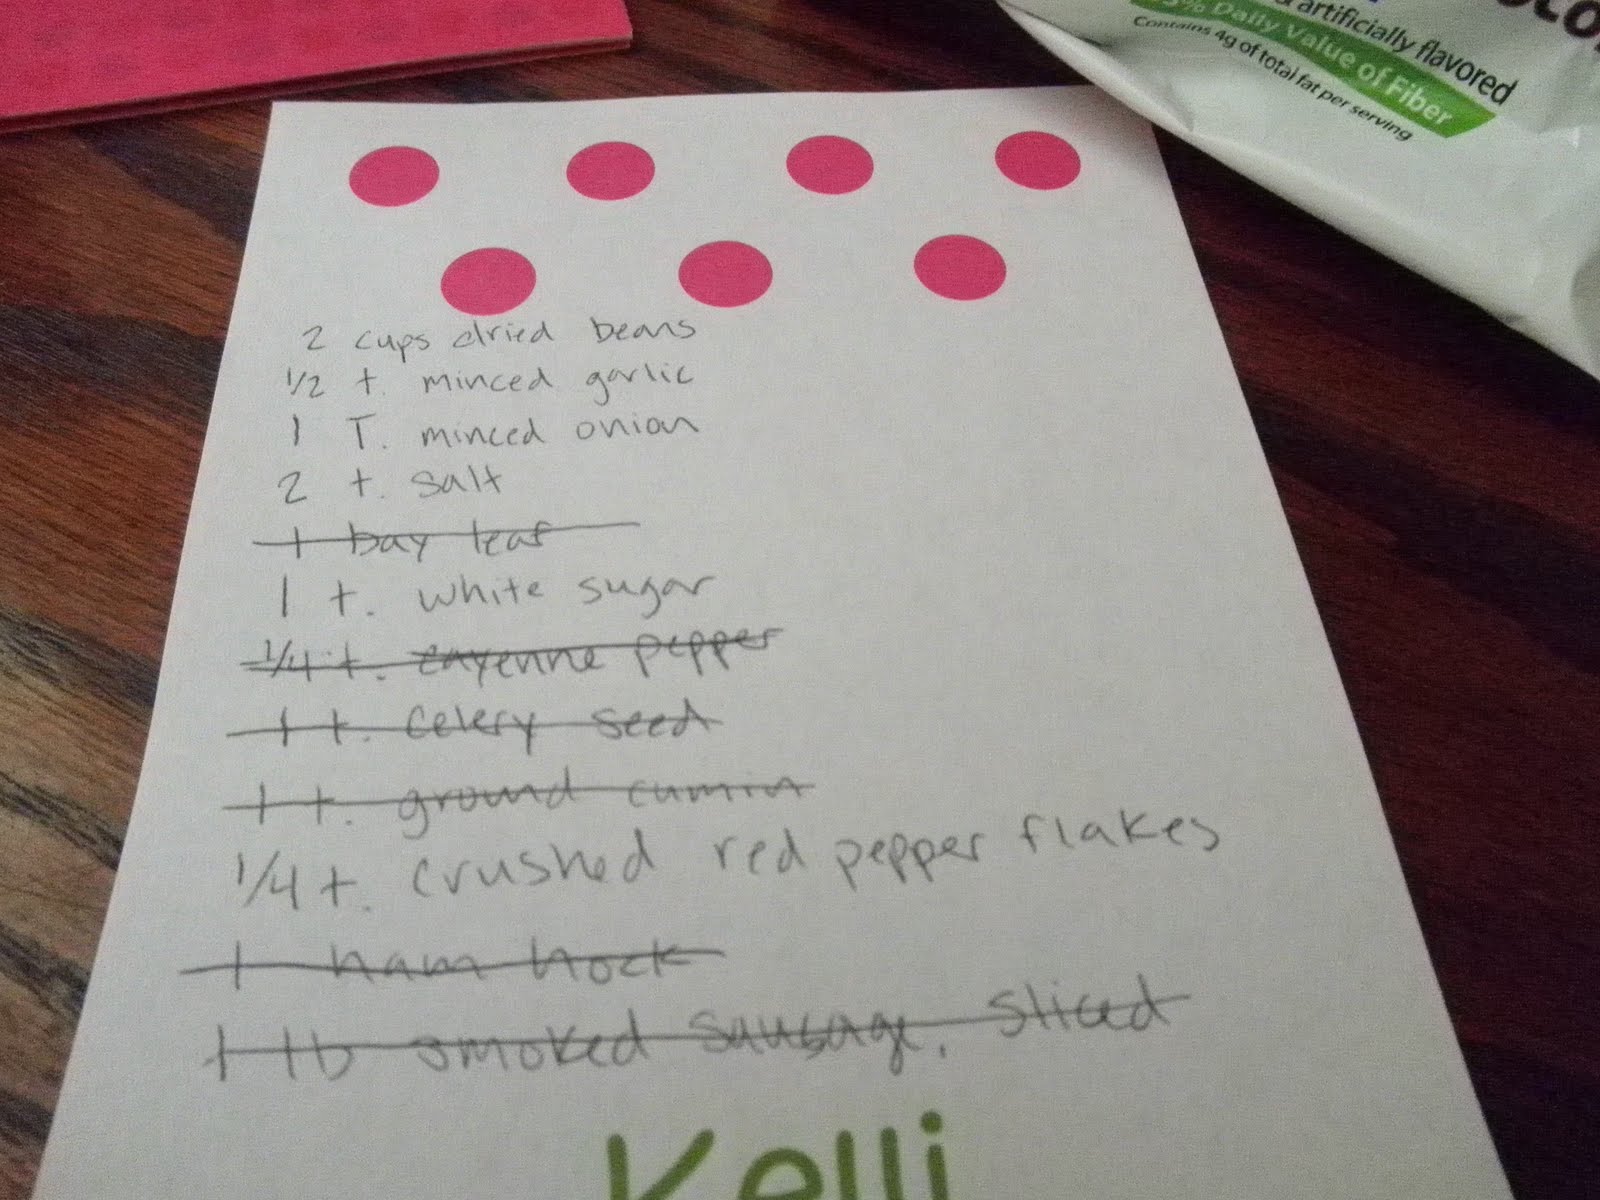 artificially flavored
% Daily Value of Fiber
Contains 4g of total fat per serving
2 cups dried beans
1/2 t. minced garlic
1 T. minced onion
2 t. salt
1 bay leaf
1 t. white sugar
1/4 t. cayenne pepper
1 t. celery seed
1 t. ground cumin
1/4 t. crushed red pepper flakes
1 ham hock
1 lb smoked sausage, sliced
Kelli